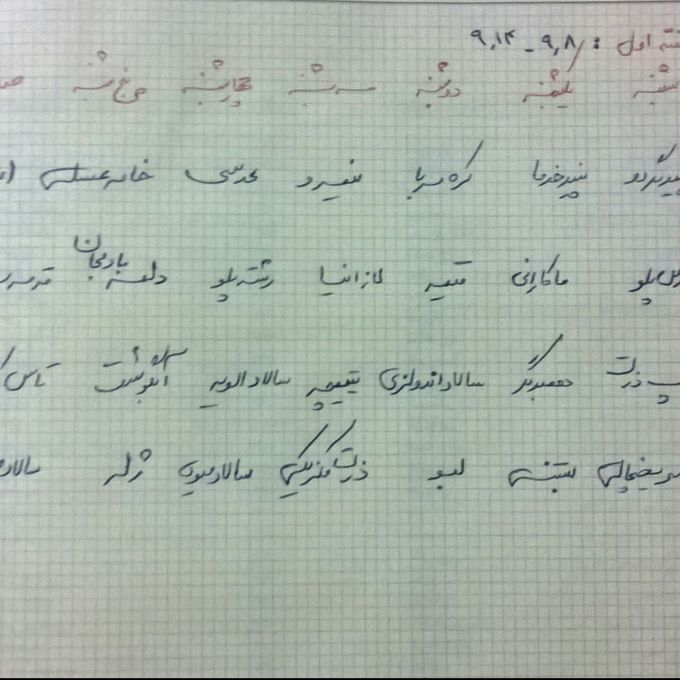 هفته اول : ۹٫۸ - ۹٫۱۴
شنبه یکشنبه دوشنبه سه شنبه چهارشنبه پنج شنبه
پنیر گردو پنیر خرما کره مربا نیمرو عدسی خامه عسل
پلو ماکارانی قیمه لازانیا رشته پلو دلمه بادمجان
سوپ ذرت همبرگر سالاد اندونزی پیتزا سالاد الویه آبگوشت تاس
یخچالی بستنی لبو ذرت مکزیکی سالاد میوه ژله سالاد